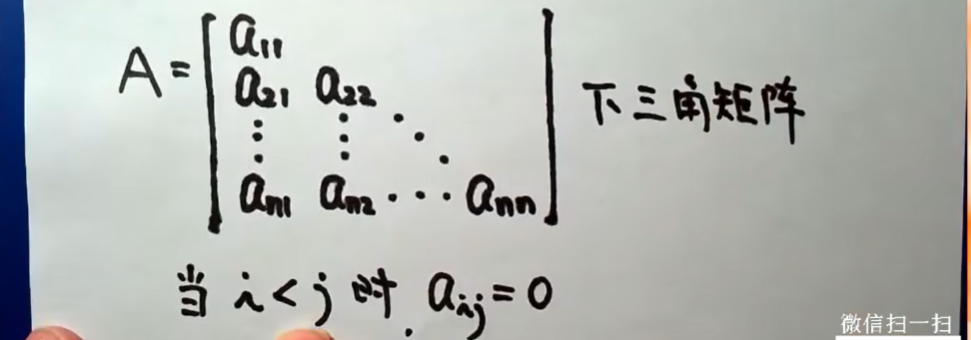 A = [ a₁₁
a₂₁ a₂₂
⋮ ⋮ ⋱
aₙ₁ aₙ₂ ⋯ aₙₙ ] 下三角矩阵
当 i < j 时, aᵢⱼ = 0
微信扫一扫